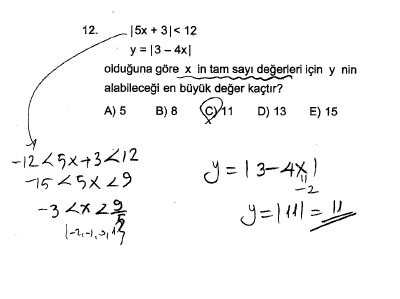 12. |5x + 3| < 12
y = |3 – 4x|
olduğuna göre x in tam sayı değerleri için y nin
alabileceği en büyük değer kaçtır?
A) 5 B) 8 C) 11 D) 13 E) 15
-12 < 5x+3 < 12
-15 < 5x < 9
-3 < x < 9/5
{-2, -1, 0, 1}
y = |3-4x|
-2
y = |11| = 11